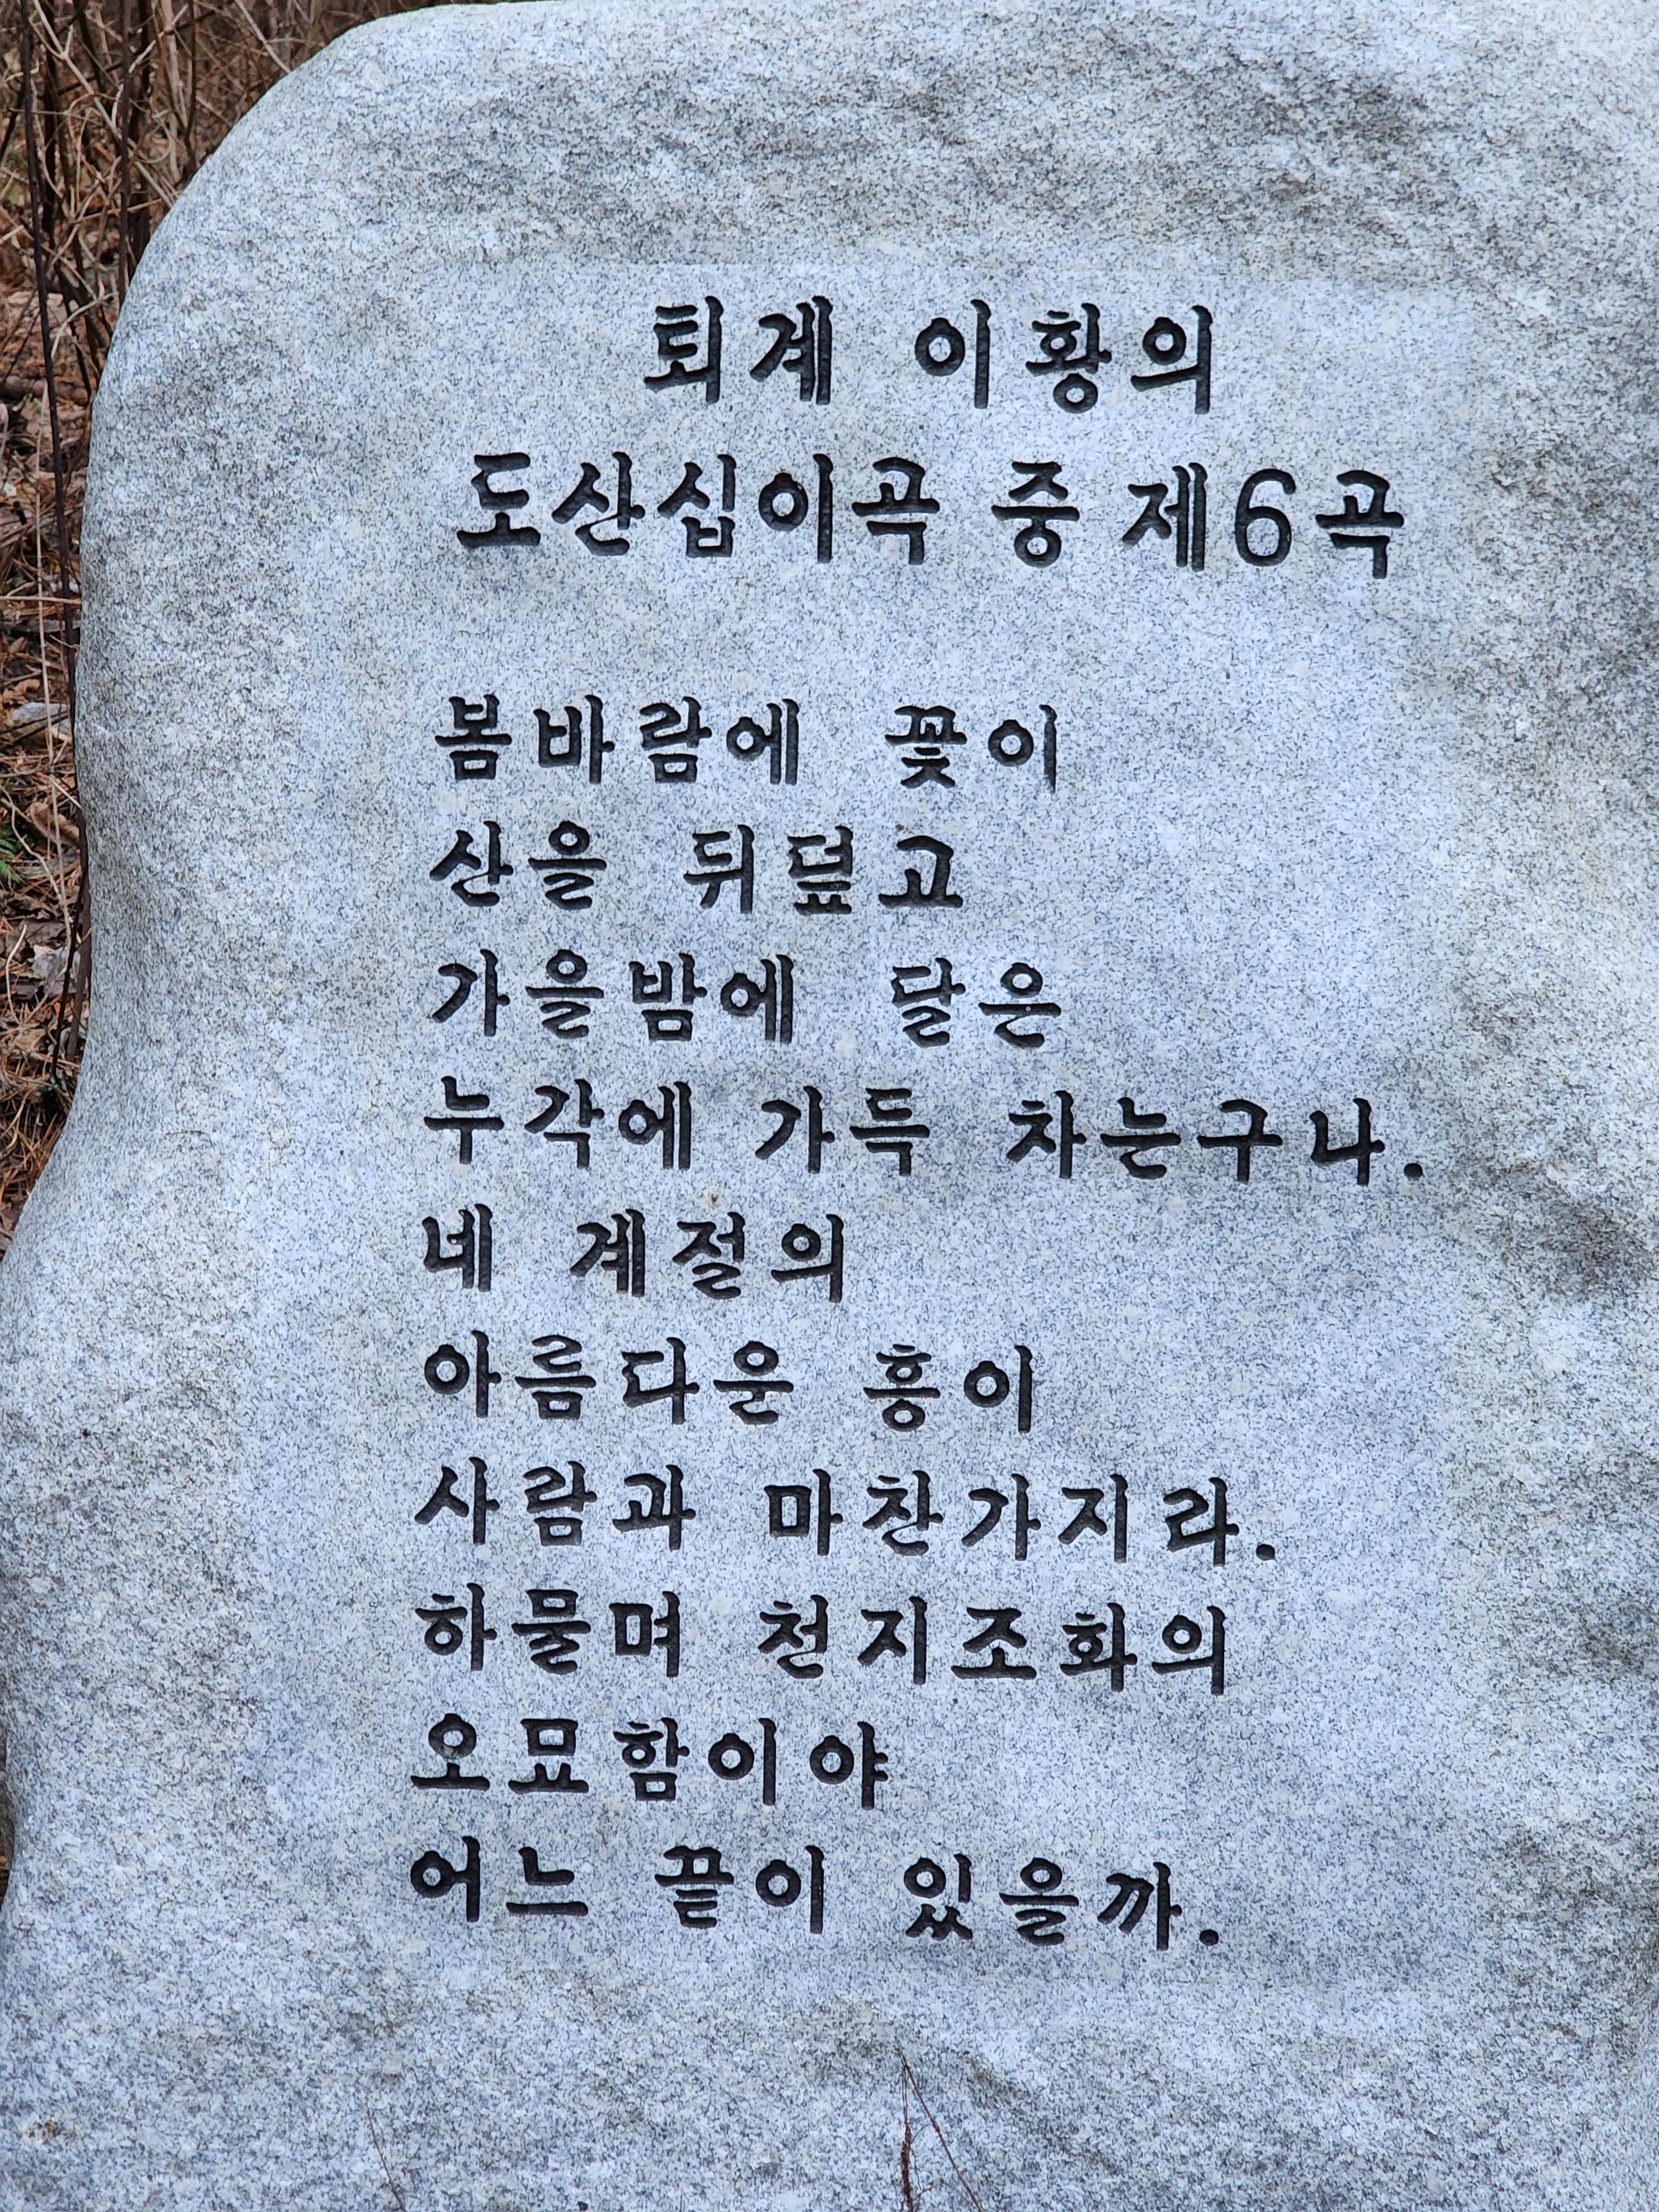 퇴계 이황의
도산십이곡 중 제6곡
봄바람에 꽃이
산을 뒤덮고
가을밤에 달은
누각에 가득 차는구나.
네 계절의
아름다운 흥이
사람과 마찬가지라.
하물며 천지조화의
오묘함이야
어느 끝이 있을까.